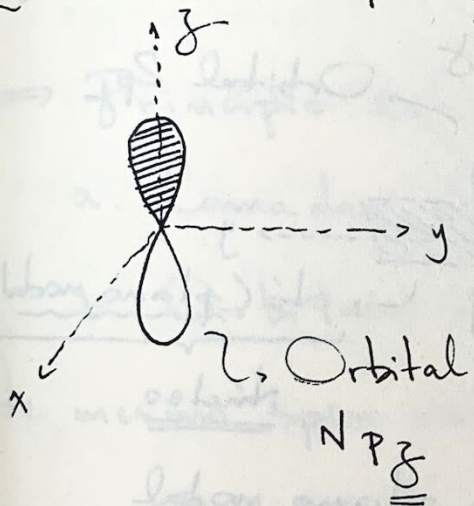 z
y
x
↳ Orbital
N p z